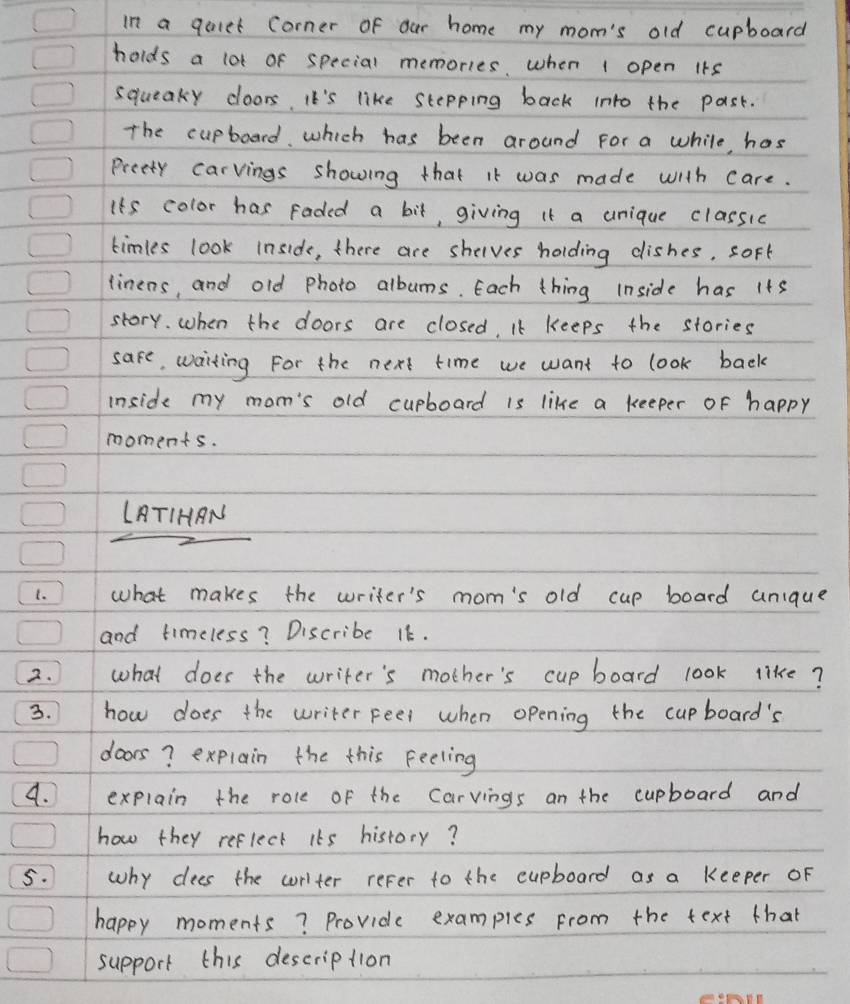 in a quiet corner of our home my mom's old cupboard
holds a lot of special memories. when i open its
squeaky doors, it's like stepping back into the past.
The cupboard, which has been around for a while, has
Preety carvings showing that it was made with care.
its color has faded a bit, giving it a unique classic
timles look inside, there are shelves holding dishes, soft
linens, and old photo albums. Each thing inside has its
story. when the doors are closed, it keeps the stories
safe, waiting for the next time we want to look back
inside my mom's old cupboard is like a keeper of happy
moments.
LATIHAN
1. what makes the writer's mom's old cup board unique
and timeless? Discribe it.
2. what does the writer's mother's cup board look like?
3. how does the writer feel when opening the cup board's
doors? explain the this feeling
4. explain the role of the carvings an the cupboard and
how they reflect its history?
5. why dees the writer refer to the cupboard as a keeper of
happy moments? Provide examples from the text that
support this description
SiDU